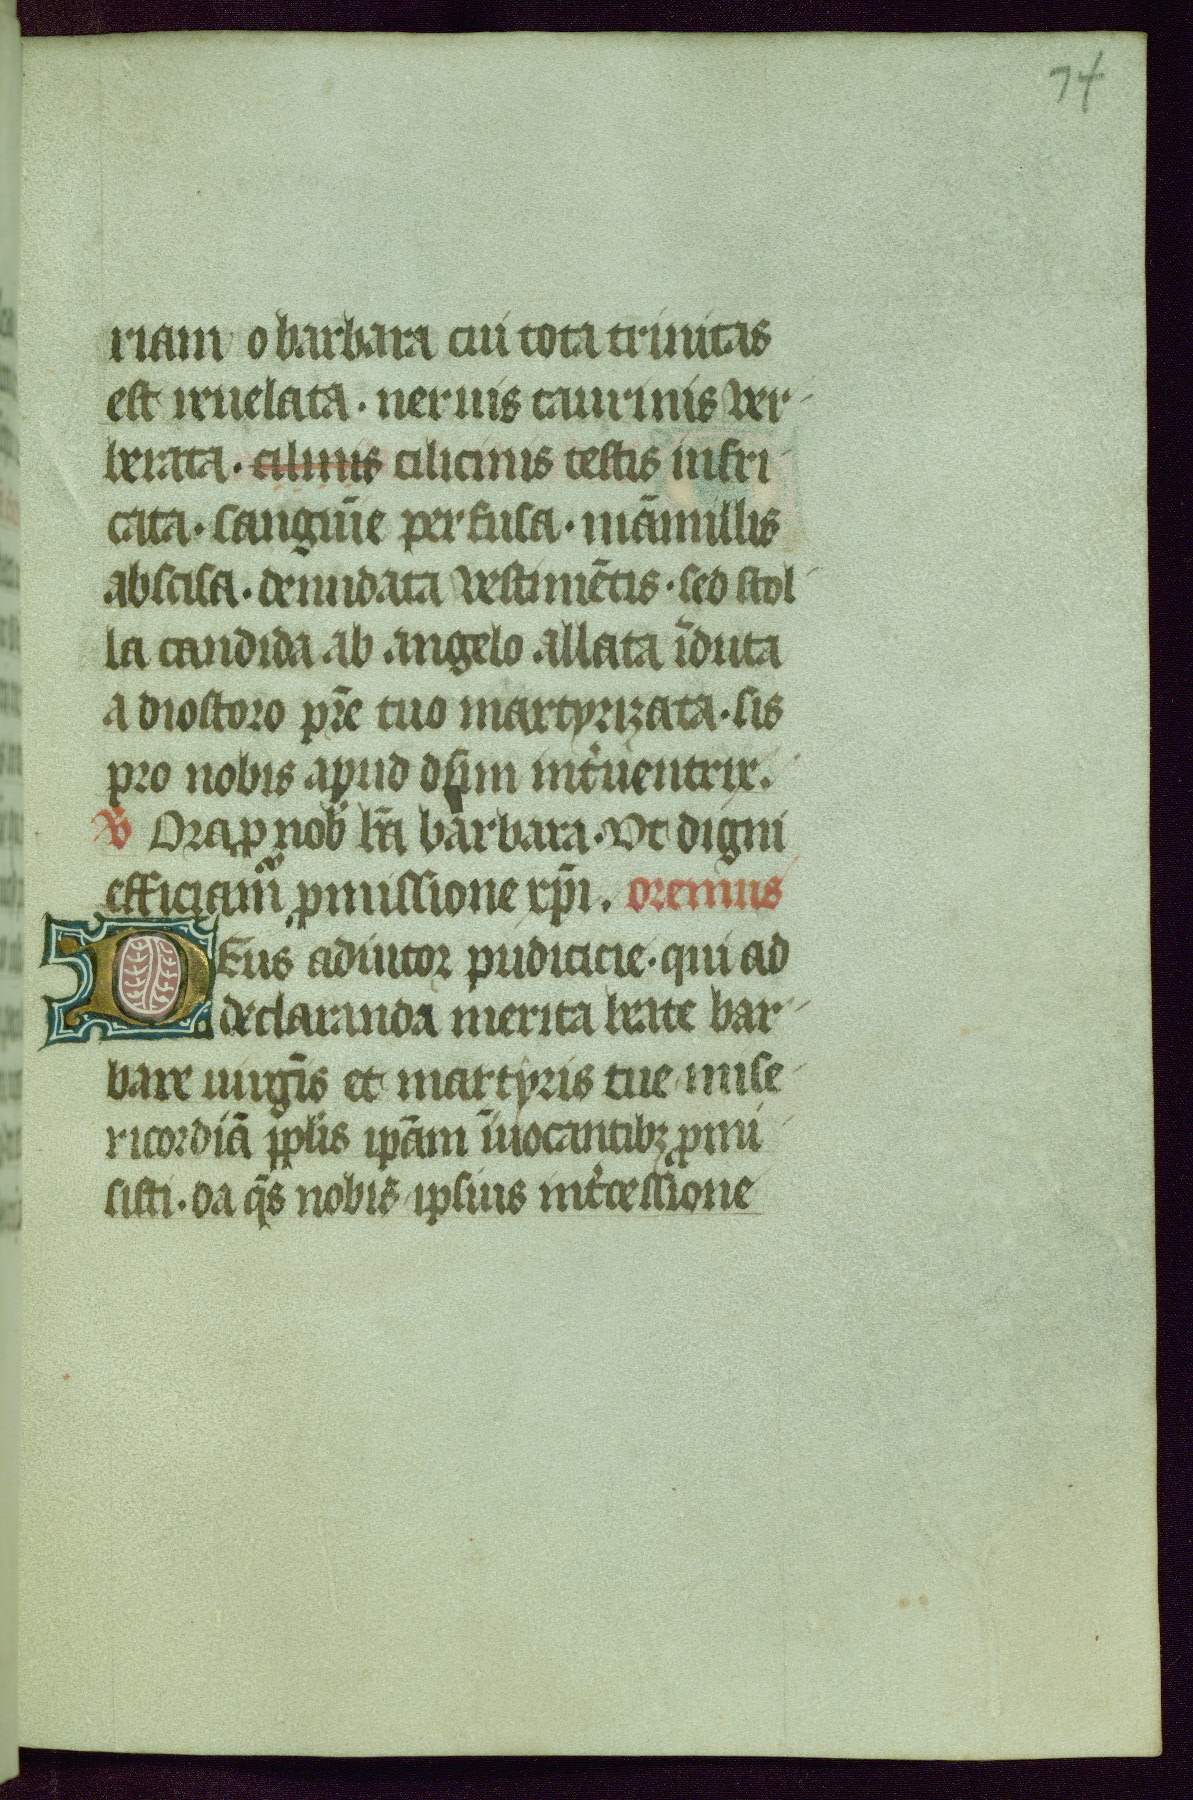 74
riam o barbara cui tota trinitas
est reuelata · neruis taurinis ver
berata · cilinis cilicinis testis infri
cata · sanguīe perfusa · māmillis
abscisa · denudata vestimētis · sed stol
la candida ab angelo allata īduta
a diostoro pr̄e tuo martyrizata · sis
pro nobis apud dn̄m int̉uentrix.
℣ Ora p nob̄ bt̄a barbara · Vt digni
efficiam̉ pmissione xp̄i. oremus
DEus adiutor pudicicie · qui ad
declaranda merita beate bar
bare uirgīs et martyris tue mise
ricordiā pplīs ipām īuocantibꝫ pmi
sisti · da q̄s nobis ipsius int̉cessione